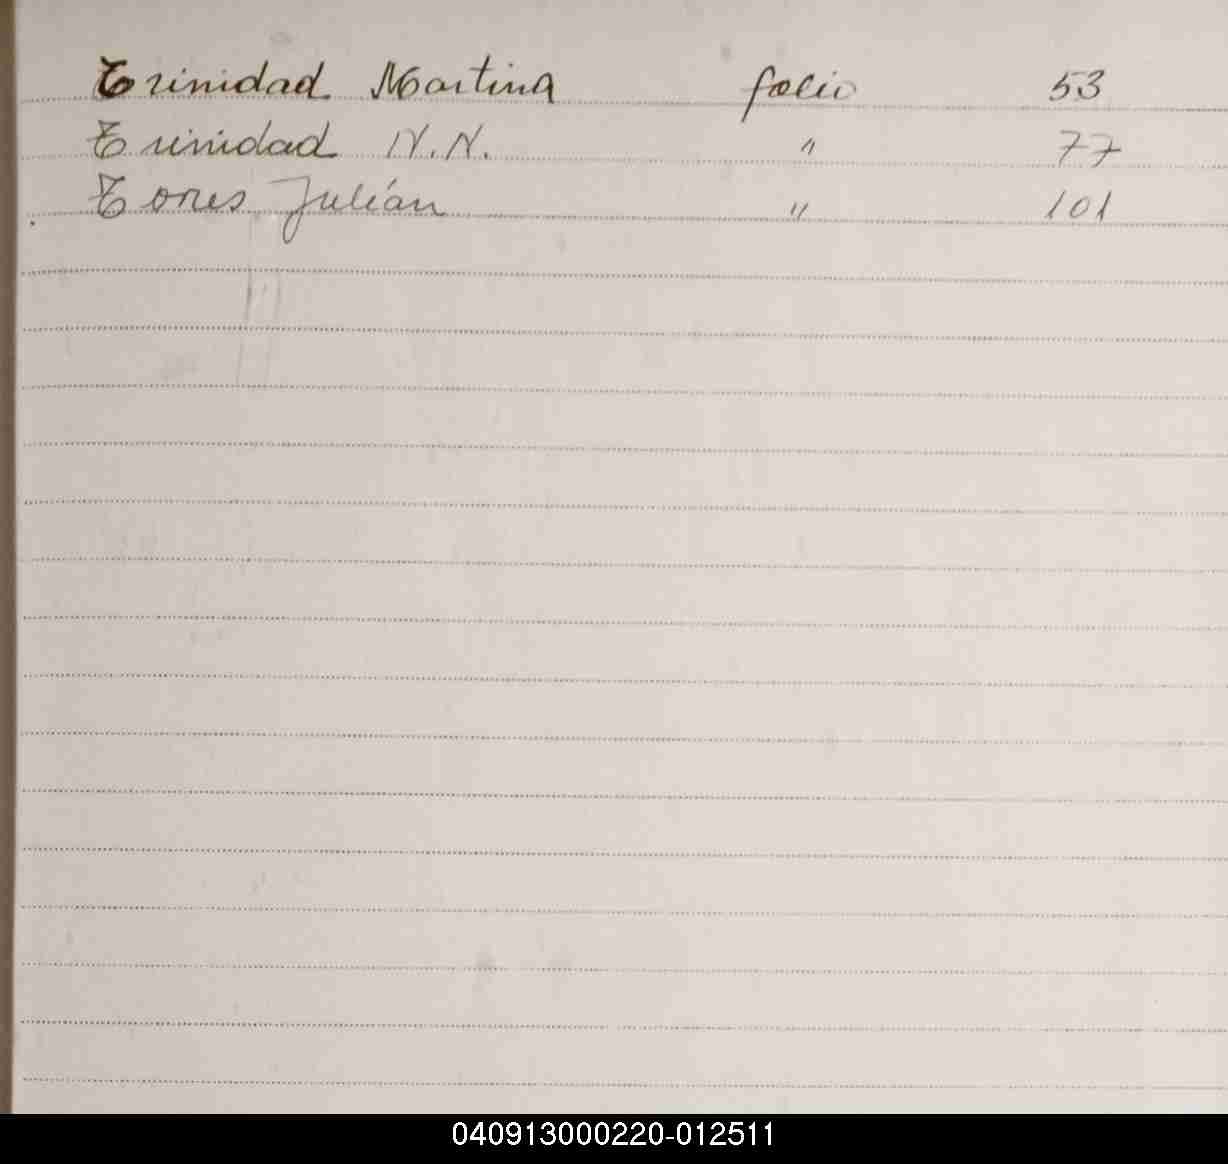 Trinidad Martina folio 53
Trinidad N.N. " 77
Torres Julián " 101
040913000220-012511